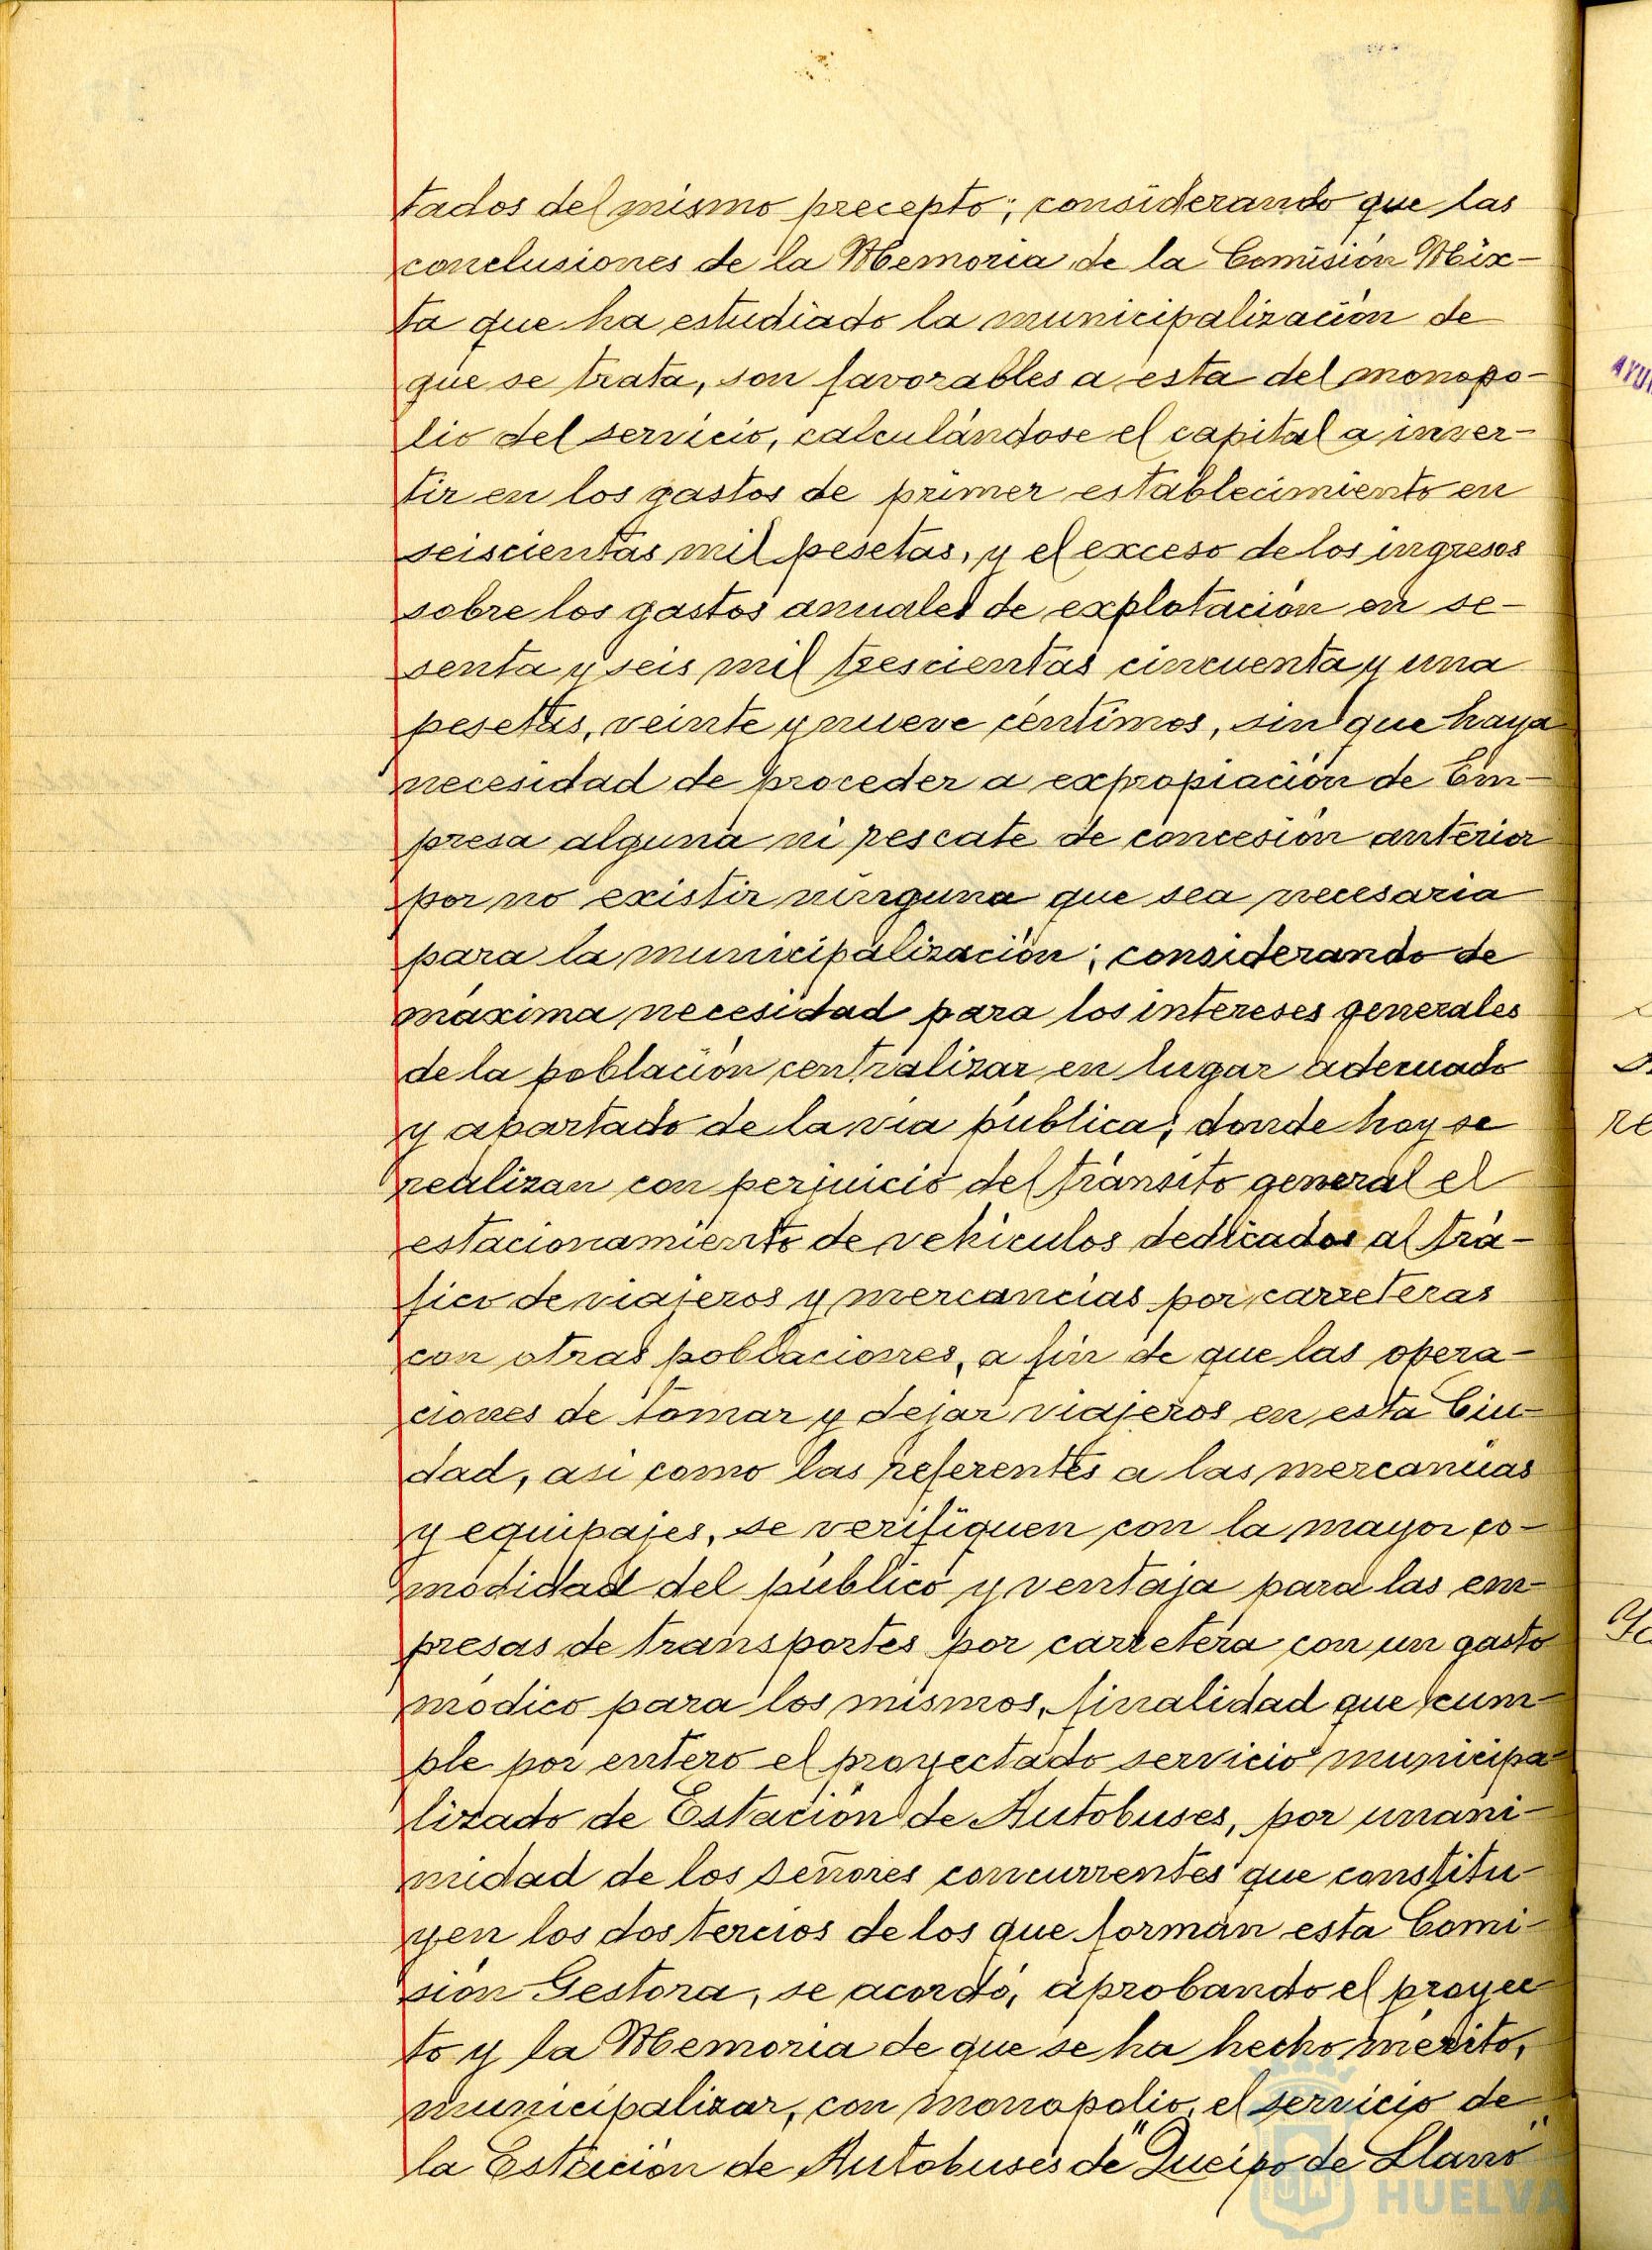 tados del mismo precepto; considerando que las
conclusiones de la Memoria de la Comisión Mix-
ta que ha estudiado la municipalización de
que se trata, son favorables a esta del monopo-
lio del servicio, calculándose el capital a inver-
tir en los gastos de primer establecimiento en
seiscientas mil pesetas, y el exceso de los ingresos
sobre los gastos anuales de explotación en se-
senta y seis mil trescientas cincuenta y una
pesetas, veinte y nueve céntimos, sin que haya
necesidad de proceder a expropiación de Em-
presa alguna ni rescate de concesión anterior
por no existir ninguna que sea necesaria
para la municipalización; considerando de
máxima necesidad para los intereses generales
de la población centralizar en lugar adecuado
y apartado de la via pública, donde hoy se
realizan con perjuicio del tránsito general el
estacionamiento de vehiculos dedicados al trá-
fico de viajeros y mercancias por carreteras
con otras poblaciones, a fin de que las opera-
ciones de tomar y dejar viajeros en esta Ciu-
dad, asi como las referentes a las mercancias
y equipajes, se verifiquen con la mayor co-
modidad del público y ventaja para las em-
presas de transportes por carretera con un gasto
módico para los mismos, finalidad que cum-
ple por entero el proyectado servicio municipa-
lizado de Estación de Autobuses, por unani-
midad de los señores concurrentes que constitu-
yen los dos tercios de los que forman esta Comi-
sión Gestora, se acordó, aprobando el proyec-
to y la Memoria de que se ha hecho mérito,
municipalizar, con monopolio, el servicio de
la Estación de Autobuses de "Queipo de Llano"
HUELVA
AYU
re